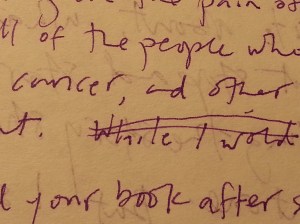 the pain of
of the people who
cancer, and other
While I wold
your book after